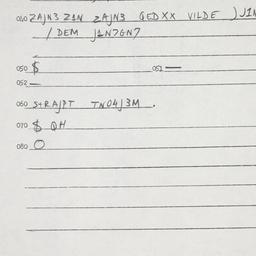 040 ZAJN3 Z1N ZAJN3 GEDXX VILDE
/ DEM J1N7GN7
050 $ 051 —
052 —
060 S+RAJPT TN04J3M.
070 $ QH
080 O